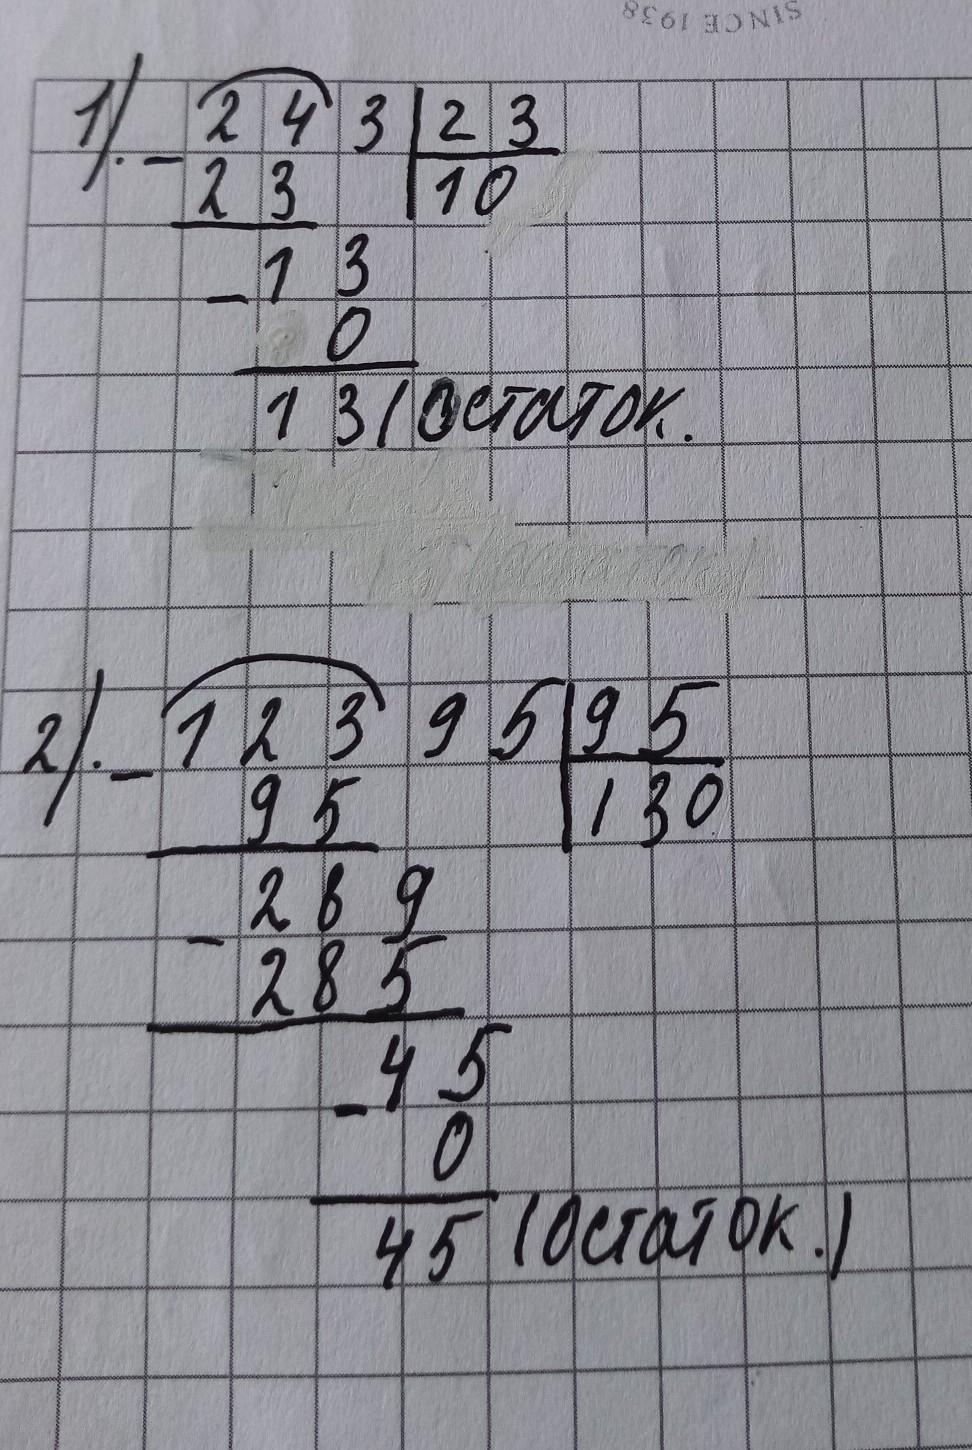 SINCE 1938
1). - 243 | 23
23 | 10
- 13
0
13 (Остаток.
2). - 12395 | 95
95 | 130
- 289
285
- 45
0
45 (остаток.)